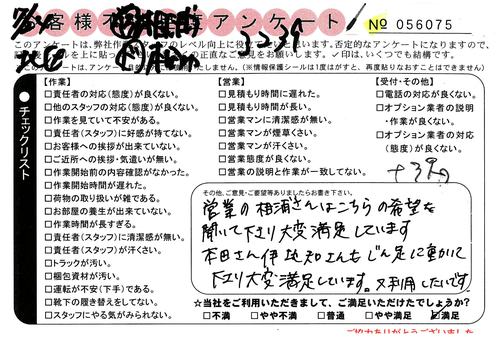 お客様不満足度アンケート
No 056075
このアンケートは、弊社作
を上に貼っ
のアンケートは、アンケート
(※情報保護シールは1度はがすと、再度貼りなおすことはできません)
チェックリスト
【作業】
□責任者の対応(態度)が良くない。
□他のスタッフの対応(態度)が良くない。
□作業を見ていて不安がある。
□責任者(スタッフ)に好感が持てない。
□お客様への挨拶が出来ていない。
□ご近所への挨拶・気遣いが無い。
□作業開始前の内容確認がなかった。
□作業開始時間が遅れた。
□荷物の取り扱いが雑である。
□お部屋の養生が出来ていない。
□作業時間が長すぎる。
□責任者(スタッフ)に清潔感が無い。
□責任者(スタッフ)が汗くさい。
□トラックが汚い。
□梱包資材が汚い。
□運転が不安(下手)である。
□靴下の履き替えをしてない。
□スタッフにやる気がみられない。
【営業】
□見積もりに遅れた。
□見積もり時間が長い。
□営業マンに清潔感が無い。
□営業マンが煙草くさい。
□営業マンが汗くさい。
□営業態度が良くない。
□営業の説明と作業が一致してない。
【受付・その他】
□電話の対応が良くない。
□オプション業者の説明
・作業が良くない。
□オプション業者の対応
(態度)が良くない。
その他、ご意見・ご要望等ありましたらお書き下さい。
営業の相浦さんはこちらの希望を
聞いて下さり大変満足しています
本田さん伊比知さんもじん足に動いて
下さり大変満足しています。又利用したいです
☆当社をご利用いただきまして、ご満足いただけたでしょうか?
□不満 □やや不満 □普通 □やや満足 ☑満足
ご協力ありがとうございました